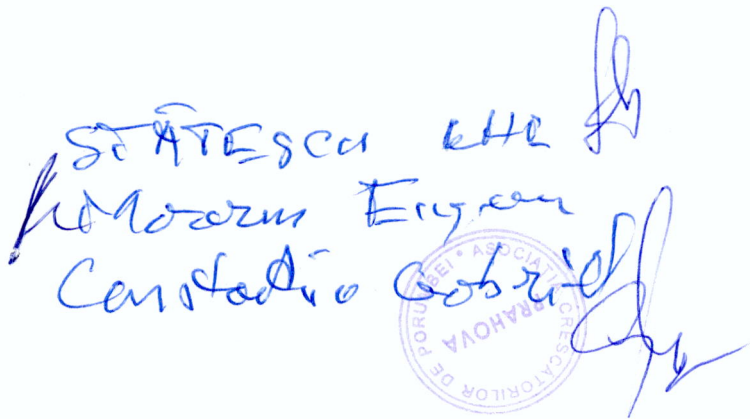 STĂTESCU
Eugen
Constantin Gabriel
ASOCIAȚIA CRESCĂTORILOR DE PORUMBEI
PRAHOVA